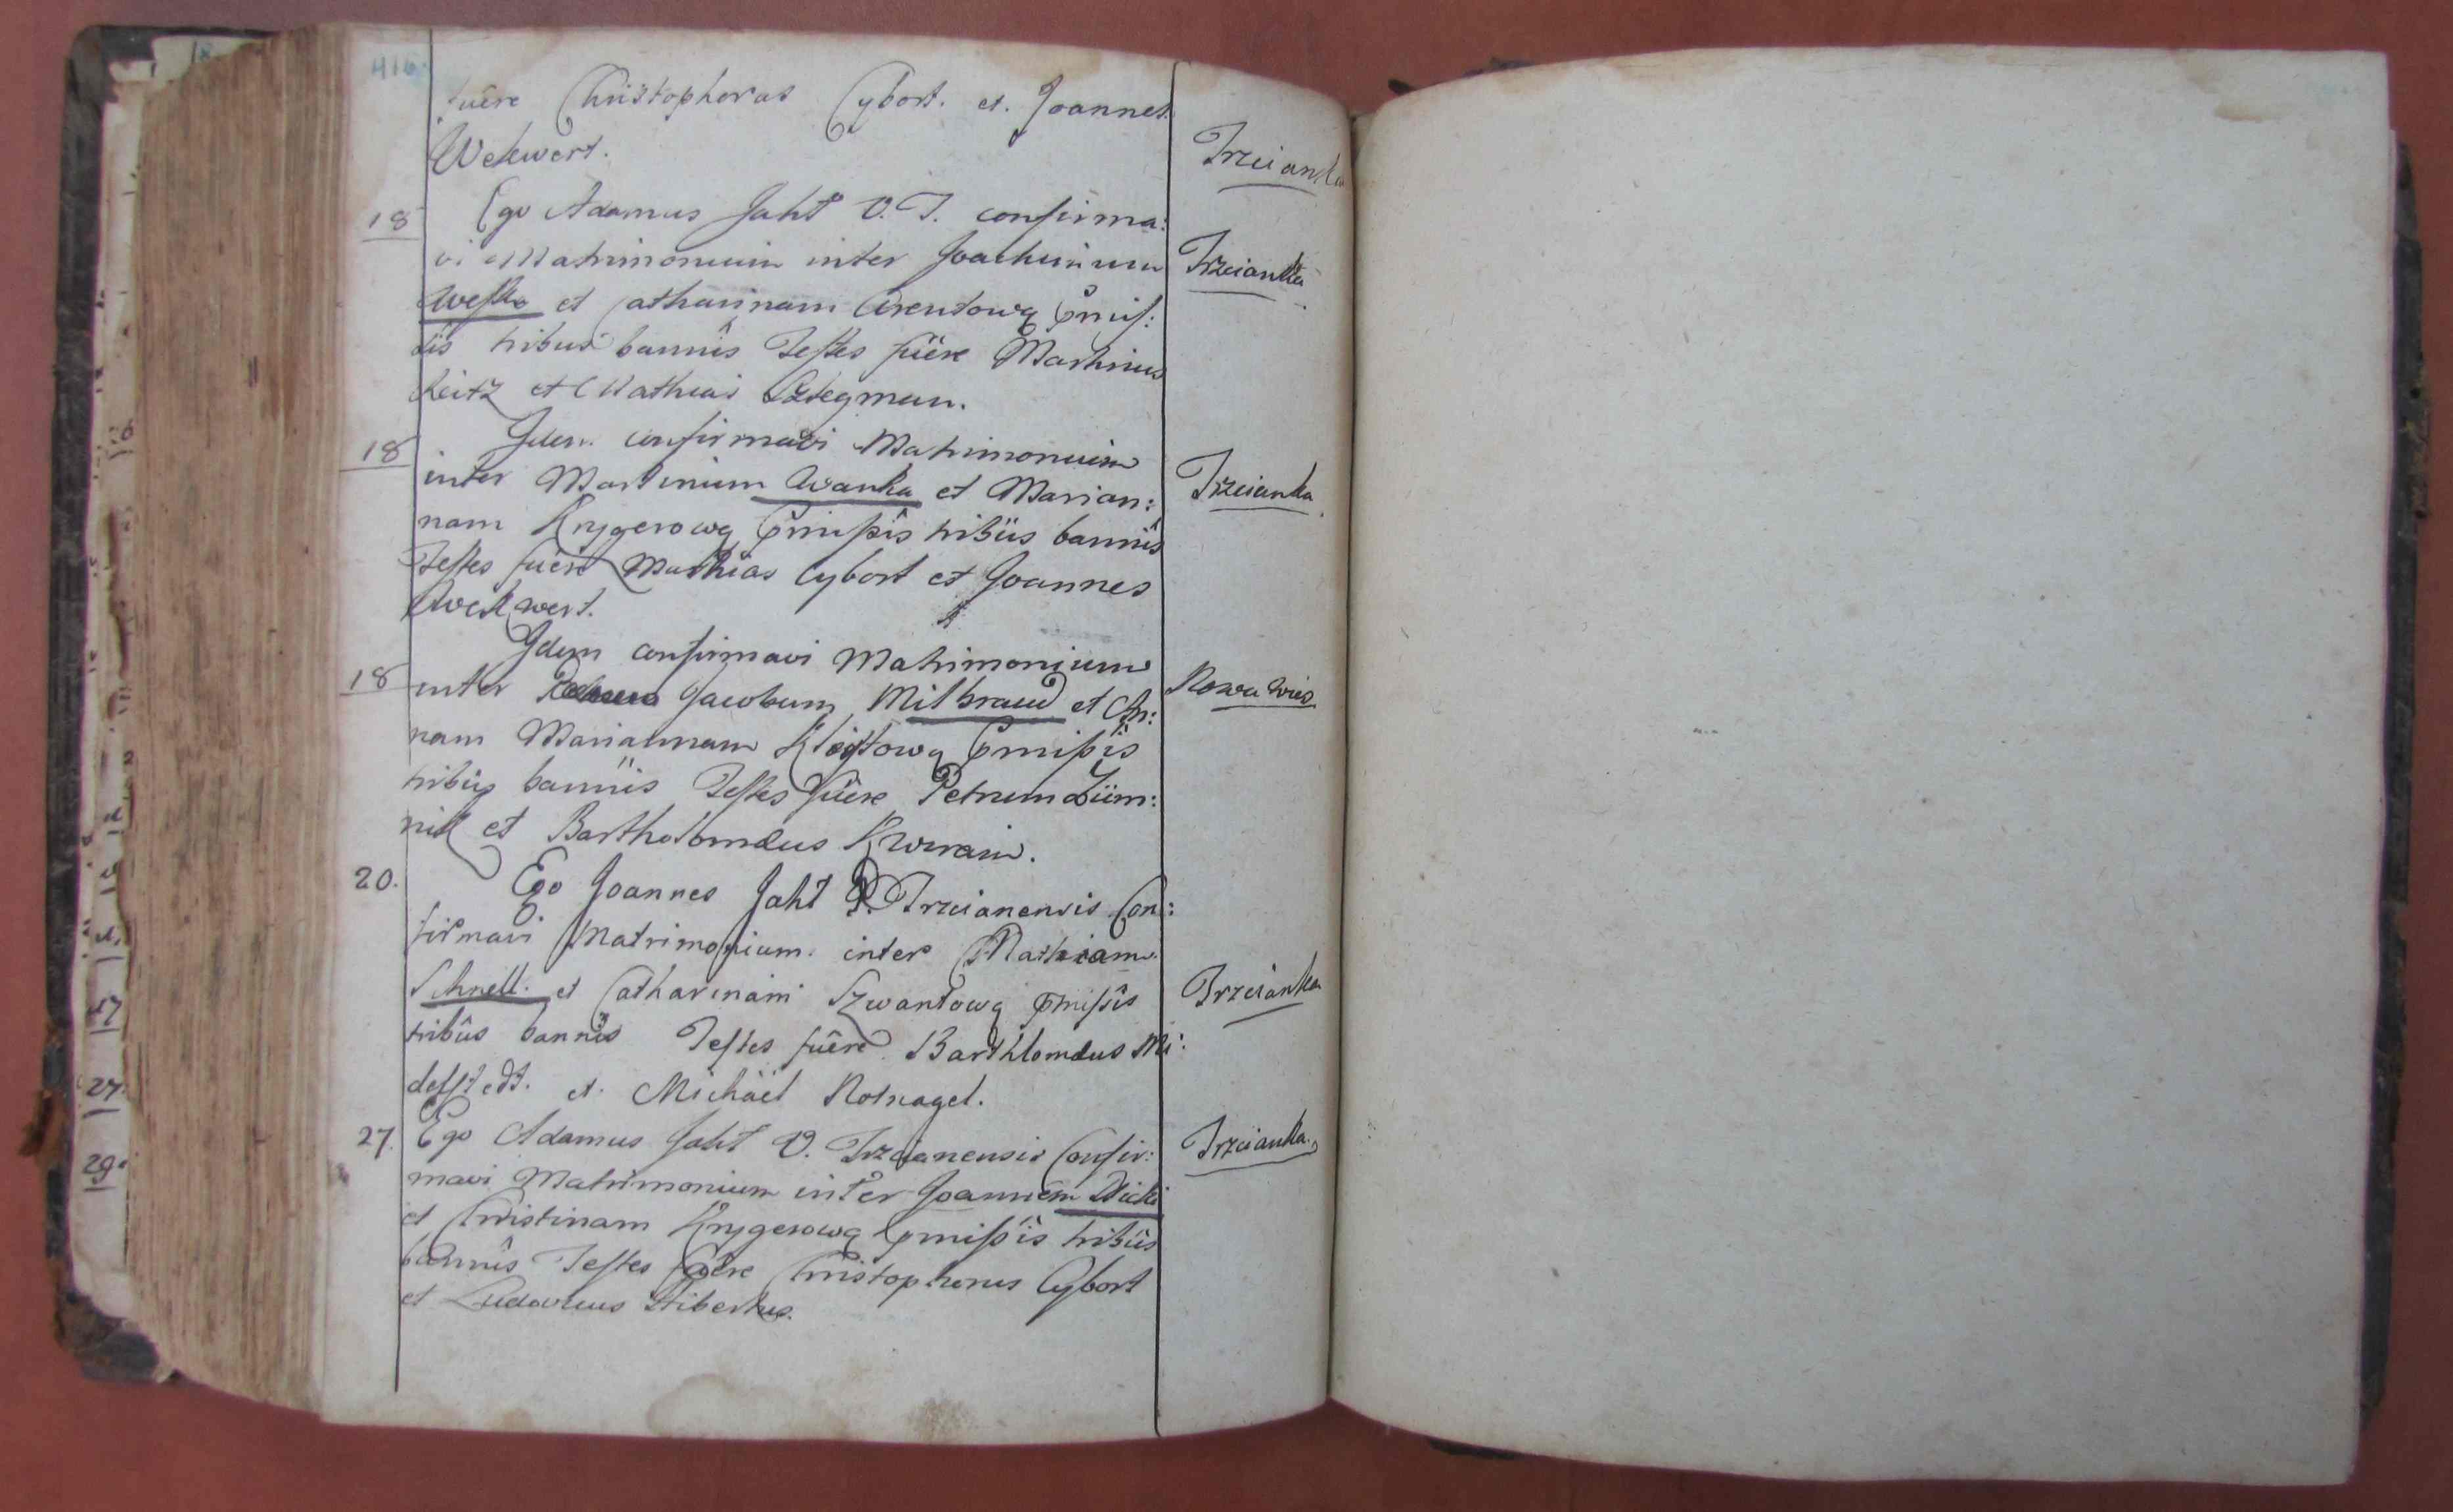 416.
fuêre Christophorus Cybort. et. Joannes
Wekwert.
Trzcianka
18 Ego Adamus Jaht V. T. confirma:
vi Matrimonium inter Joachimum Trzcianka
Weske et Catharinam Arentową pmis:
sis tribus bannis Testes fuêre Martinus
Reitz et Mathias Sztegman.
18 Idem confirmavi Matrimonium
inter Martinum Wanka et Marian: Trzcianka
nam Krygerową pmißis tribûs bannîs
Testes fuêre Mathias Cybort et Joannes
Wekwert.
18 Idem confirmavi Matrimonium
inter Jacobum Milbraud et An: Nowa wies
nam Mariannam pmißis
tribûs bannîs Testes fuêre Petrum Züm:
nik et Bartholomæus
20. Ego Joannes Jaht P. Trzcianensis Con:
firmavi Matrimonium. inter Mathiam
Schnell. et Catharinam Szwantową pmißîs Trzcianka
tribûs bannîs Testes fuêre Barthlomæus Mi:
delstedt. et. Michaël Rotnagel.
27. Ego Adamus Jaht V. Trzcianensis Confir: Trzcianka
mavi Matrimonium inter Joannem
et Christinam Krygerową pmißis tribûs
bannîs Testes fuêre Christophorus Cybort
et Ludovicus
17
27.
29.